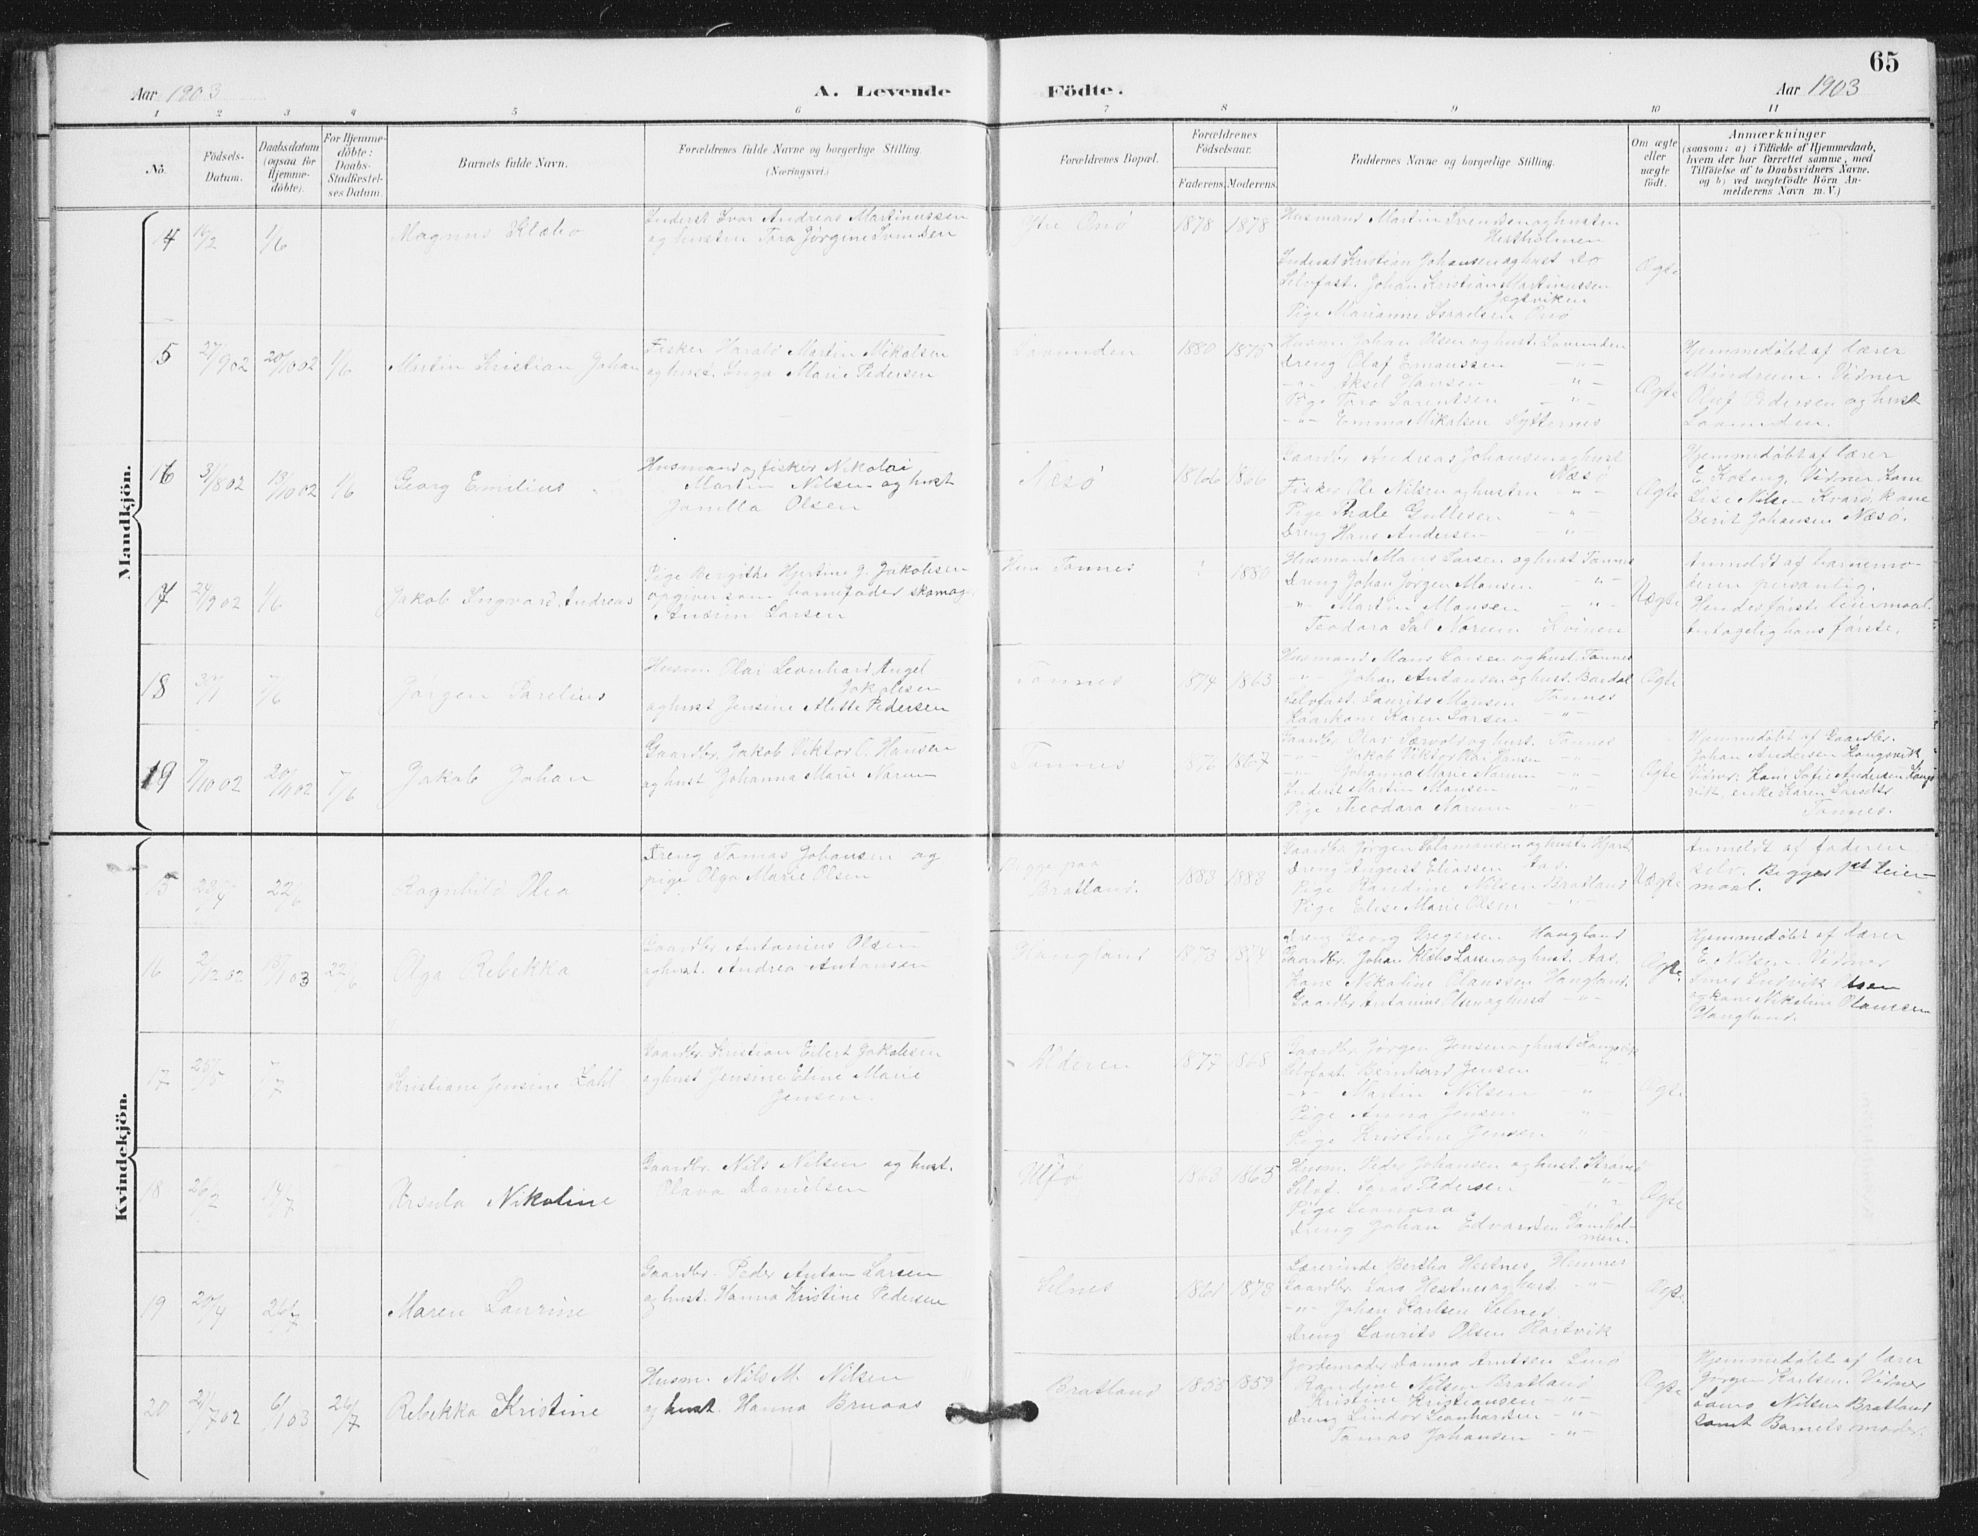 65
Aar 1903
A. Levende
Födte.
Aar 1903
1 2 3 4 5 6 7 8 9 10 11
No.
Födsels-Datum.
Daabsdatum (ogsaa for Hjemmedöbte).
For Hjemmedöbte: Daabs-Stadfæstelses Datum.
Barnets fulde Navn.
Forældrenes fulde Navne og borgerlige Stilling.
(Næringsvei.)
Forældrenes Bopæl.
Forældrenes Födselsaar.
Faderens. Moderens.
Faddernes Navne og borgerlige Stilling.
Om ægte eller uægte födt.
Anmærkninger
(saasom: a) i Tilfælde af Hjemmedaab, hvem der har forrettet samme, med Tilföielse af to Daabsvidners Navne. og b) ved uægtefödte Börn Anmelderens Navn m. V.)
Mandkjön.
14 16/2 1/6 Magnus Klæbo
Inderst Ivar Andreas Martinussen
og hustru Tora Jörgine Svendsen
Ytre Onö 1878 1878
Husmand Martin Svendsen og hustru
Hestholmen
Inderst Kristian Johansen og hust Do
Selvfast. Johan Kristian Martinussen
Pige Marianne Israelsen Onö
Ægte
15 27/9 02 20/10 02 1/6 Martin Kristian Johan
Fisker Harald Martin Mikalsen
og hust. Inga Marie Pedersen
Lovunden 1880 1875
Husm. Johan Olsen og hust. Lovunden
Dreng Olaf Emaussen -"-
-"- Aksel Hansen -"-
Pige Tora Lorentsen -"-
-"- Emma Mikalsen Sytternes
Ægte
Hjemmedöbt af lærer
Mindrum. Vidner
Oluf Pedersen og hust
Lovunden.
16 31/8 02 13/10 02 1/6 Georg Emilius
Husmand og fisker Nikolai
Martin Nilsen og hust
Janilla Olsen
Næsö 1866 1866
Gaardbr. Andreas Johansen og hust
Næsö
Fisker Ole Nilsen og hustru -"-
Pige Gullesen -"-
Dreng Hans Andersen -"-
Ægte
Hjemmedöbt af lærer
E. Koteng. Vidner, Kone
Lise Nilsen Kvarö, kone
Berit Johansen Næsö.
17 24/9 02 1/6 Jakob Ingvard Andreas
Pige Bergithe Hjertine J. Jakobsen
opgiver som barnefader skomag.
Larsen
Hun Tonnes ? 1880
Husmand Mons Larsen og hust. Tonnes
Dreng Johan Jörgen Monsen -"-
-"- Martin Monsen -"-
Teodora Sal Norum Kvinen
Uægte
Anmeldt af barnemo-
deren personlig.
Hendes förste leiermaal.
Antagelig hans förste.
18 7/6 Jörgen Parelius
Husm. Olai Leonhard Angel
Jakobsen
og hust Jensine Alette Pedersen
Tonnes 1874 1863
Husmand Mons Larsen og hust. Tonnes
-"- Johan Antonsen og hust. Bardal
Selvfast. Laurits Monsen Tonnes
Kaarkone Karen Larsen -"-
Ægte
19 7/10 02 7/6 Jakob Johan
Gaardbr. Jakob Viktor O. Hansen
og hust Johanna Marie Norum
Tonnes 1876 1867
Gaardbr. og hust. Tonnes
-"- Jakob Viktor Hansen -"-
-"- Johanna Marie Norum -"-
Inderst Martin Monsen -"-
Pige Theodora Norum -"-
Ægte
Hjemmedöbt af Gaardbr.
Johan Andersen Kongsvik
Vidner: Kone Sofie Andersen Kongs-
vik, enke Karen
Tonnes.
Kvindekjön.
15 28/4 22/6 Ragnhild Olea
Dreng Tomas Johansen og
pige Olga Marie Olsen
Begge paa
Bratland. 1883 1883
Gaardbr. Jörgen Salamonsen og hust. Hjart
Dreng August Eliassen Aas.
Pige Randine Nilsen Bratland
Pige Elise Marie Olsen -"-
Uægte
Anmeldt af faderen
selv. Begges 1st leier-
maal.
16 22/6 Olga Rebekka
Gaardbr. Antonius Olsen
og hust. Andrea Antonsen
Haugland 1873 1874
Dreng Georg Haugland
Gaardbr. Johan Klæbo Larsen og hust. Aas.
Kone Nikoline Olaussen Haugland.
Gaardbr. Antonius Olsen og hust -"-
Ægte.
Hjemmedöbt af lærer
E. Nilsen. Vidner
Ludvik Olsen
og kone Nikoline Olaussen
Haugland.
17 Kristiane Jensine Zahl
Gaardbr. Kristian Eilert Jakobsen
og hust Jensine Eline Marie
Jensen.
Alderen 1877 1868
Gaardbr. Jörgen Jensen og hust Kongsvik
Selvfast. Bernhard Jensen "
-"- Martin Nilsen "
Pige Anna Jensen "
Pige Kristine Jensen "
Ægte
18 26/2 Ursula Nikoline
Gaardbr. Nils Nilsen og hust.
Olava Danielsen
Ulfö 1863 1865
Husm. Peder Johansen og hust. Strömö
Selvf. Lars Pedersen -"-
Pige Leonora "
Dreng Johan Edvardsen Tomhol-
men.
Ægte
19 20/4 26/7 Maren Laurine
Gaardbr. Peder Anton Larsen
og hust. Hanna Kristine Pedersen
Selnes 1861 1873
Lærerinde Bertha Hestnes Hemnes
Gaardbr. Lars Hestnes og hust. -"-
-"- Johan Karlsen Selnes
Dreng Laurits Olsen Rortvik
Ægte.
20 21/7 02 6/1 03 26/7 Rebekka Kristine
Husm. Nils M. Nilsen
og hust. Hanna Bruaas
Bratland 1855 1859
Jordemoder Danna Arntsen Lurö
Randine Nilsen Bratland
Kristine Kristiansen -"-
Dreng Lindor Leonhardsen -"-
Tomas Johansen -"-
Ægte
Hjemmedöbt af lærer
Jörgen Karlsen. Vidner
Nilsen Bratland
samt Barnets moder.